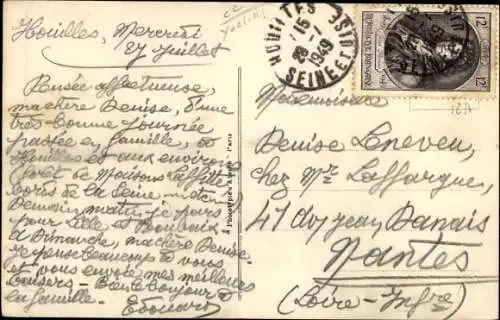 Houilles, Mercredi
27 Juillet
Pensée affectueuse,
ma chère Denise, d'une
très bonne journée
passée en famille, à
Houilles et aux environs
(foret de Maisons Laffitte
bords de la Seine
Demain matin je pars
pour Lille et Roubaix
à Dimanche, ma chère Denise
Je pense beaucoup à vous
et vous envoie mes meilleurs
baisers - Bien le bonjour à
la famille. Edouard
HOUILLES
15
28 -7
1949
SEINE ET OISE
12
12
Mademoiselle
Denise Leneveu,
chez Mr Laffargue,
41 Jean
Nantes
(Loire-Infre)